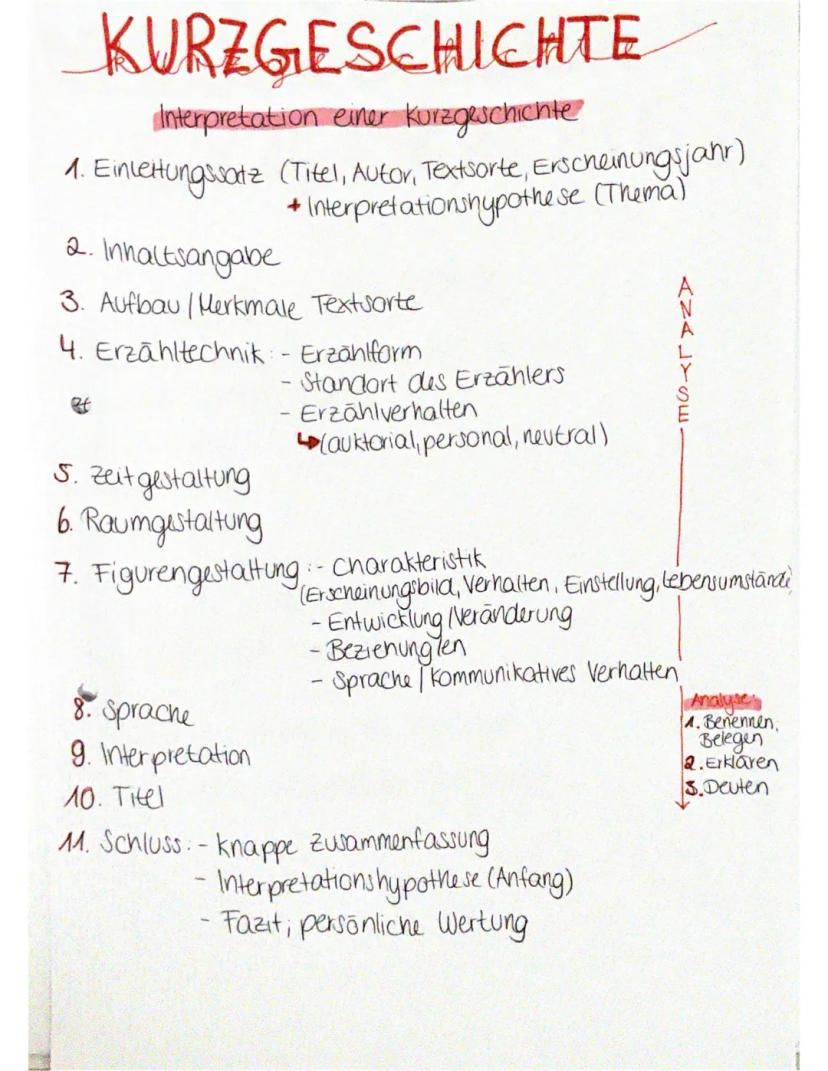 KURZGESCHICHTE
Interpretation einer Kurzgeschichte
1. Einleitungssatz (Titel, Autor, Textsorte, Erscheinungsjahr)
+ Interpretationshypothese (Thema)
2. Inhaltsangabe
3. Aufbau / Merkmale Textsorte
4. Erzähltechnik: - Erzählform
- Standort des Erzählers
- Erzählverhalten
↳ (auktorial, personal, neutral)
5. Zeitgestaltung
6. Raumgestaltung
7. Figurengestaltung: - Charakteristik
(Erscheinungsbild, Verhalten, Einstellung, Lebensumstände)
- Entwicklung / Veränderung
- Beziehung/en
- Sprache / Kommunikatives Verhalten
8. Sprache
9. Interpretation
10. Titel
11. Schluss: - knappe Zusammenfassung
- Interpretationshypothese (Anfang)
- Fazit; persönliche Wertung
ANALYSE
Analyse:
1. Benennen,
Belegen
2. Erklären
3. Deuten